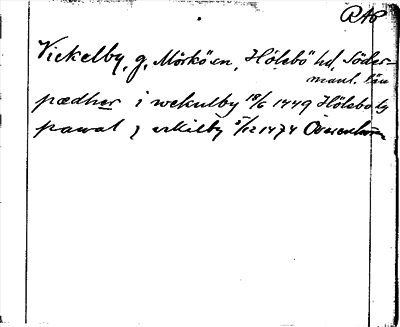 RAP
Vickelby, g, Mörkö sn, Hölebö hd, Söder-
manl. län
pædher i wekulby 18/6 1449 Hölebo
pawal j vikilby 5/12 1474